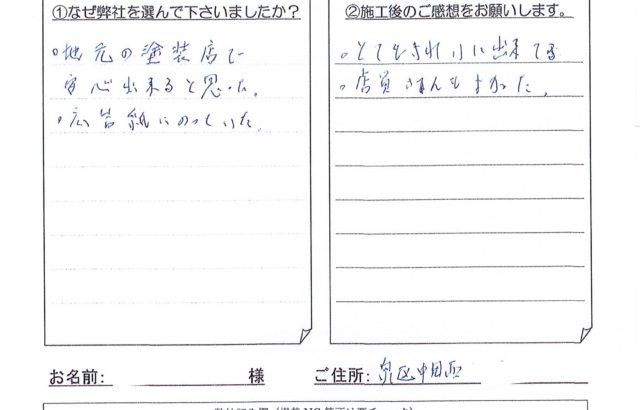 ①なぜ弊社を選んで下さいましたか？
・地元の塗装店で
安心出来ると思った。
・広告紙にのっていた。
②施工後のご感想をお願いします。
・とてもきれいに出来てる
・店員さんもよかった。
お名前: 様
ご住所: 泉区中田西